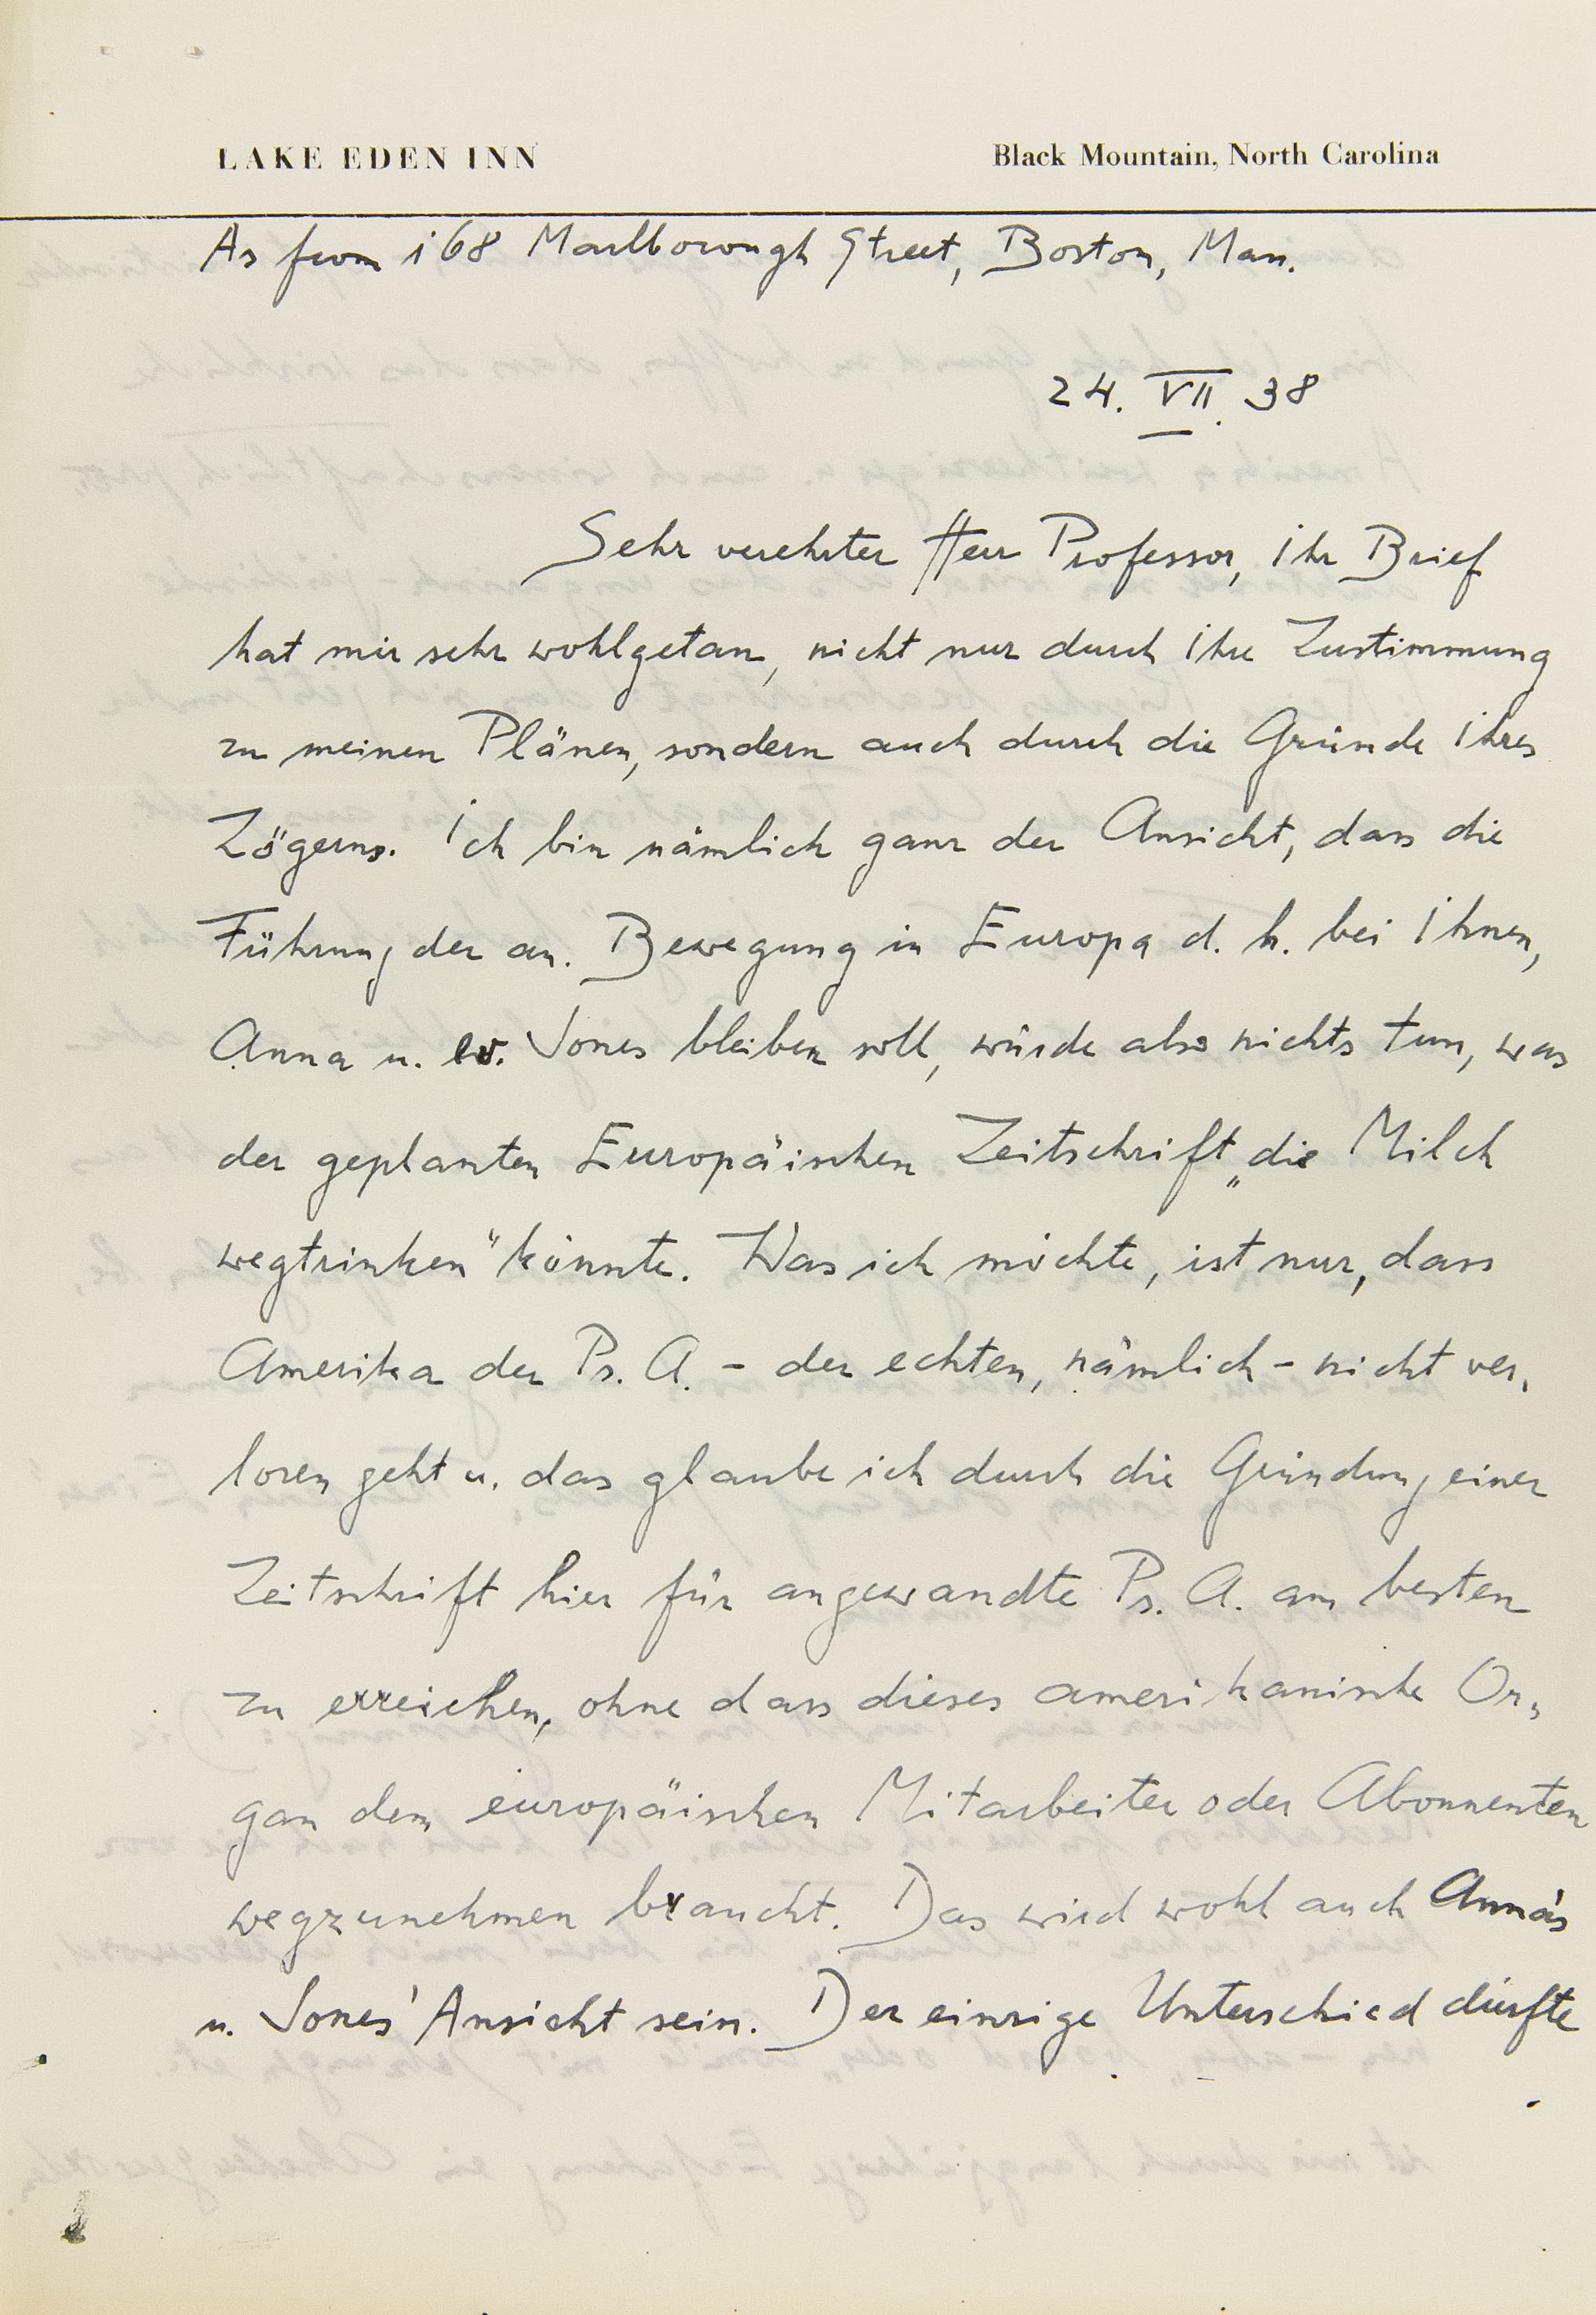 LAKE EDEN INN
Black Mountain, North Carolina
As from 168 Marlborough Street, Boston, Mass.
24. VII. 38
Sehr verehrter Herr Professor, Ihr Brief
hat mir sehr wohlgetan, nicht nur durch Ihre Zustimmung
zu meinen Plänen, sondern auch durch die Gründe Ihres
Zögerns. Ich bin nämlich ganz der Ansicht, dass die
Führung der an. Bewegung in Europa d. h. bei Ihnen,
Anna u. ev. Jones bleiben soll, würde also nichts tun, was
der geplanten Europäischen Zeitschrift „die Milch
wegtrinken" könnte. Was ich möchte, ist nur, dass
Amerika der Ps. A. - der echten, nämlich - nicht ver-
loren geht u. das glaube ich durch die Gründung einer
Zeitschrift hier für angewandte Ps. A. am besten
zu erreichen, ohne dass dieses amerikanische Or-
gan dem europäischen Mitarbeiter oder Abonnenten
wegzunehmen braucht. Das wird wohl auch Anna's
u. Jones' Ansicht sein. Der einzige Unterschied dürfte